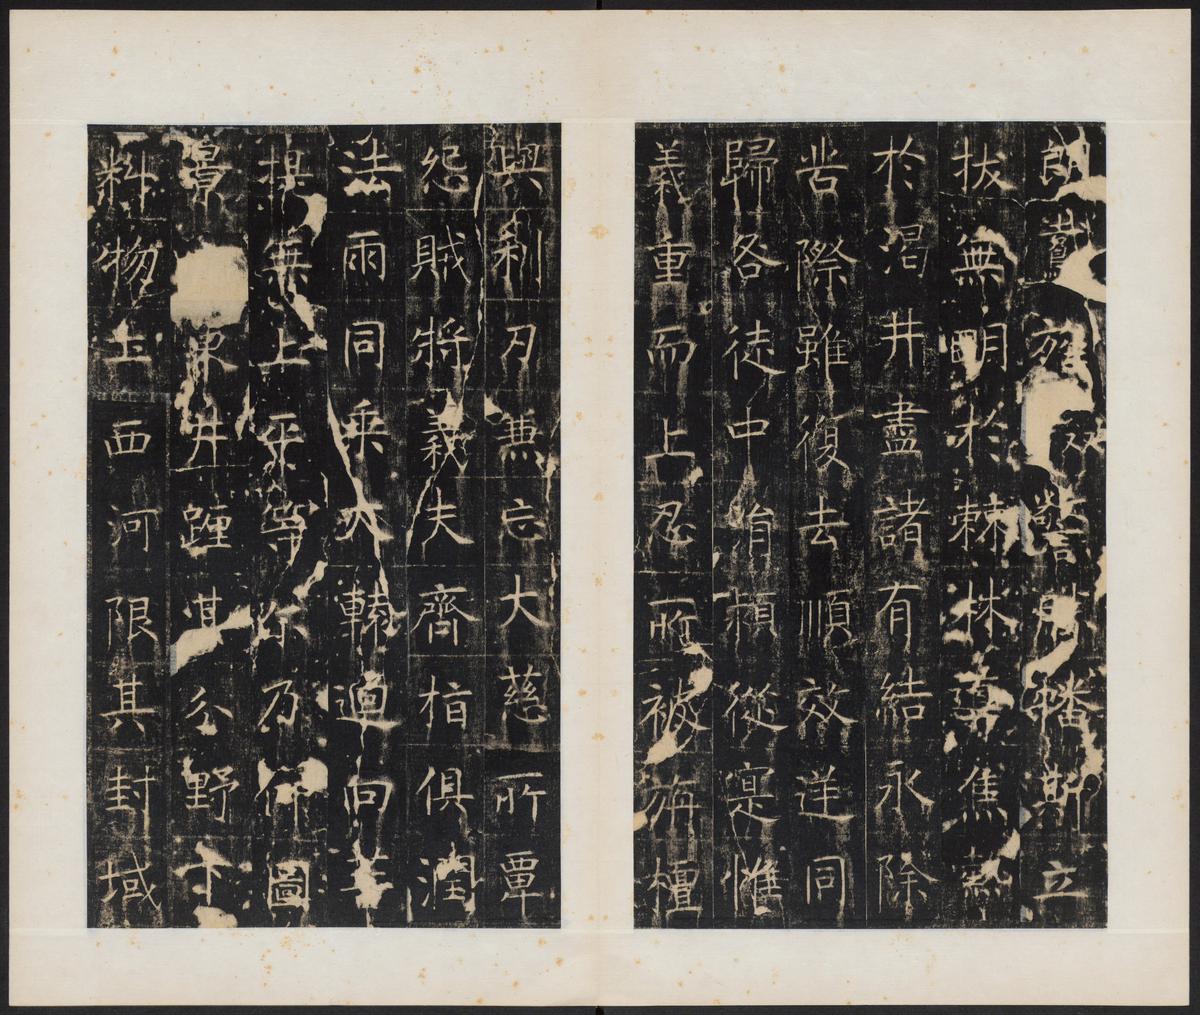 朗鼖旌警勝幡斯立
拔無明於棘林導焦熱
於渇井盡諸有結永除
苦際雖復去順效逆同
歸各徒中從寔惟
義重而上忍所被旃檀
與利刃兼忘大慈所覃
怨賊將義夫齊指俱潤
法雨同乘大轅迴向菩
提無上平等尔乃仰圖
景東井躔其分野下
料物土西河限其封域